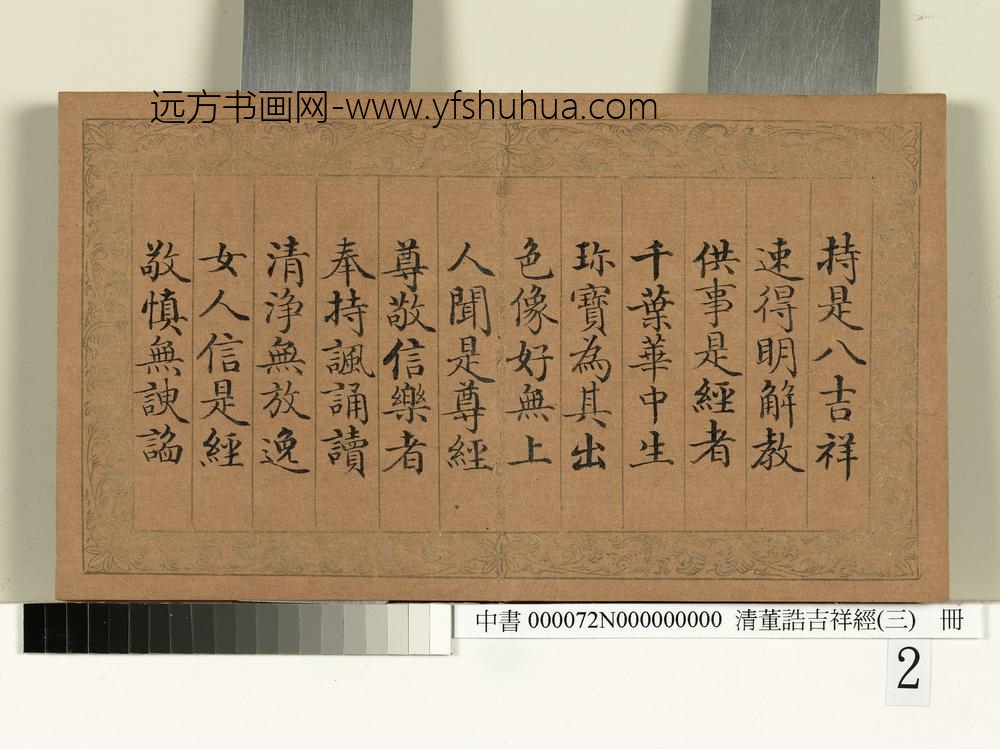 远方书画网-www.yfshuhua.com
持是八吉祥
速得明解教
供事是經者
千葉華中生
珎寶為其出
色像好無上
人聞是尊經
尊敬信樂者
奉持諷誦讀
清淨無放逸
女人信是經
敬慎無諛諂
中書 000072N000000000 清董誥吉祥經(三) 冊
2